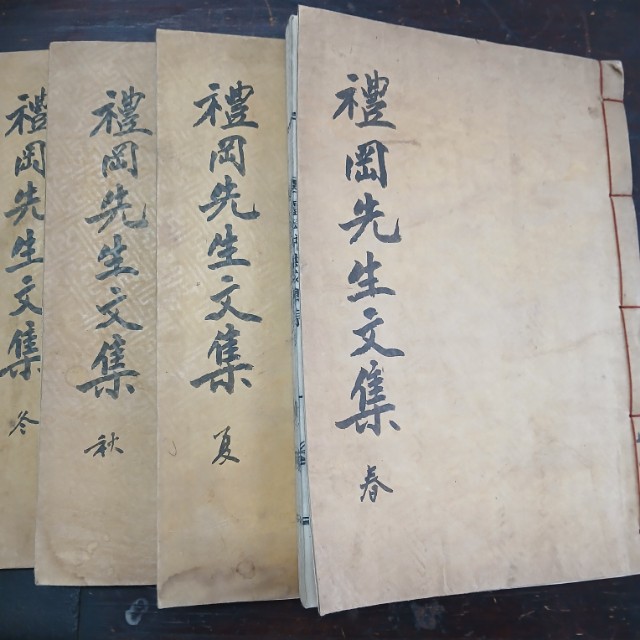 禮岡先生文集
春
禮岡先生文集
夏
禮岡先生文集
秋
禮岡先生文集
冬